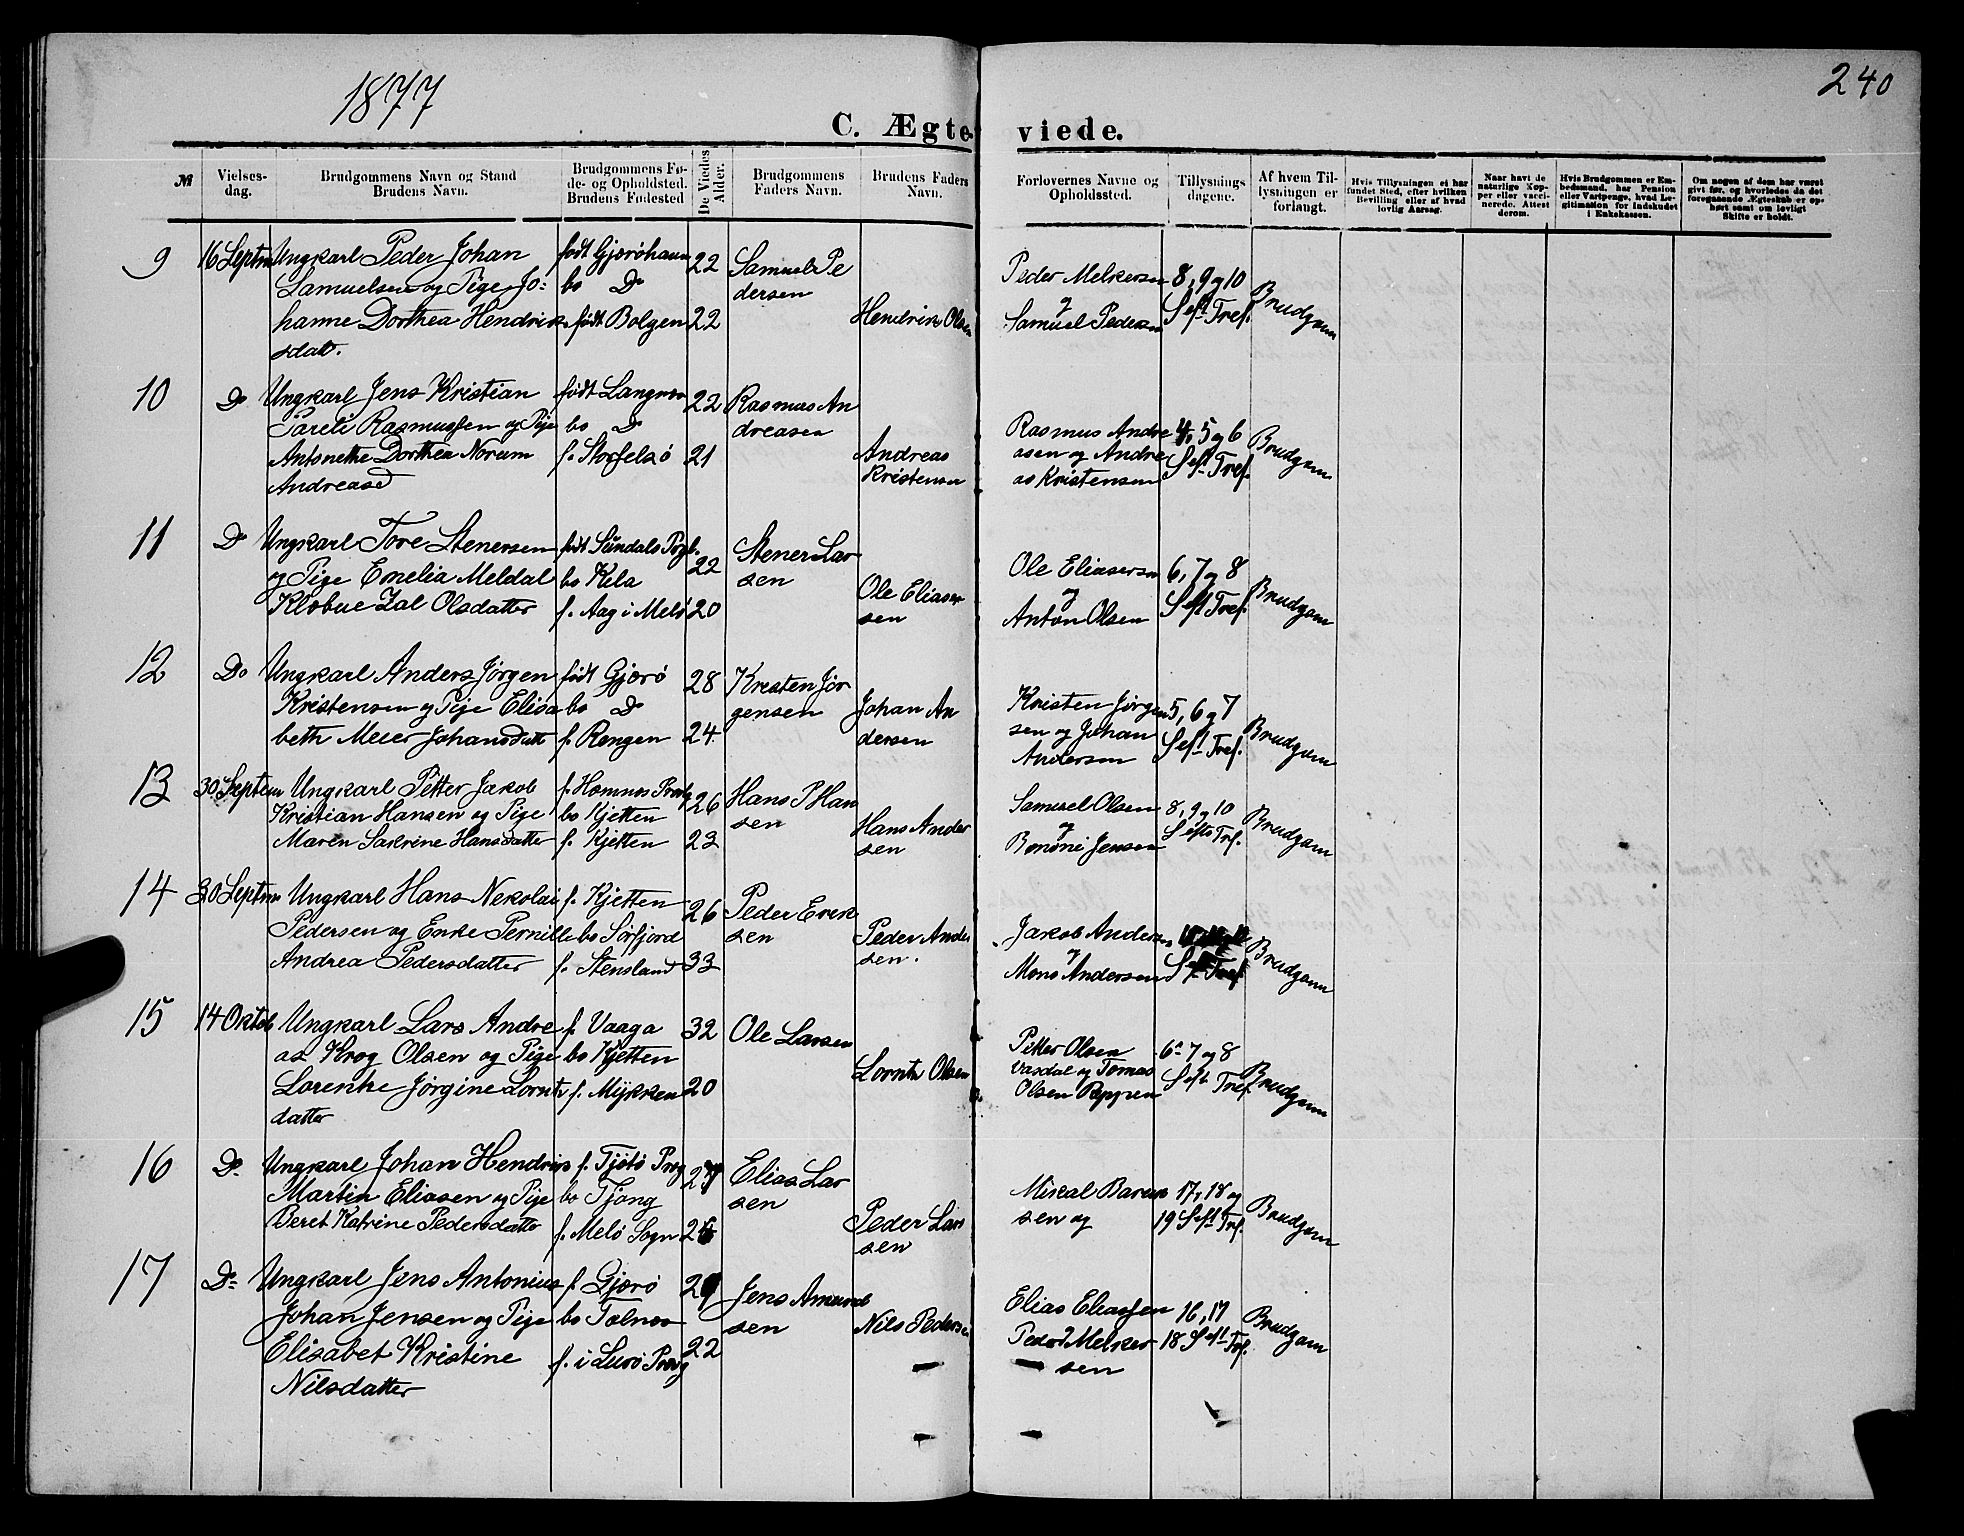 1877
240
C. Ægte- viede.
№
Vielses-
dag.
Brudgommens Navn og Stand
Brudens Navn.
Brudgommens Fø-
de- og Opholdsted.
Brudens Fødested
De Viedes
Alder.
Brudgommens
Faders Navn.
Brudens Faders
Navn.
Forlovernes Navne og
Opholdssted.
Tillysnings
dagene.
Af hvem Til-
lysningen er
forlangt.
Hvis Tillysningen ei har
fundet Sted, efter hvilken
Bevilling eller af hvad
lovlig Aarsag.
Naar havt de
naturlige Kop-
per eller vacci-
nerede. Attest
derom.
Hvis Brudgommen er Em-
bedsmand, har Pension
eller Vartpenge, hvad Le-
gitimation for Indskudet
i Enkekassen.
Om nogen af dem har været
gift før, og hvorledes da det
foregaaende Ægteskab er op-
hørt samt om lovligt
Skifte er holdt.
9
16 Septm
Ungkarl Peder Johan
Samuelsen og Pige Jo-
hanne Dorthea Hendrik
sdatt.
født Gjærøhavn
bo Do
født Bolgen
22
22
Samuel Pe
dersen
Hendrik Olsen
Peder Melkersen
og
Samuel Pedersen
8, 9 og 10
S. eft. Tref.
Brudgom
10
Do
Ungkarl Jens Kristian
Pareli Rasmussen og Pige
Antonette Dorthea Norum
Andreasd
født Langnes
bo Do
f. Storselsø
22
21
Rasmus An
dreasen
Andreas
Kristensen
Rasmus Andre
asen og Andre
as Kristensen
4, 5 og 6
S. eft. Tref.
Brudgom
11
Do
Ungkarl Tore Stenersen
og Pige Emelia Meldal
Klæbue Zal Olsdatter
født Sundals Prgl.
bo Kila
f. Aag i Melø
22
20
Stener Lar
sen
Ole Elias
sen
Ole Eliasersen
og
Anton Olsen
6, 7 og 8
S. eft. Tref.
Brudgom
12
Do
Ungkarl Anders Jørgen
Kristensen og Pige Elisa
beth Meier Johansdatt
født Gjærø
bo Do
f. Rengen
28
24
Kresten Jør
gensen
Johan An
dersen
Kristen Jørgen
sen og Johan
Andersen
5, 6 og 7
S. eft. Tref.
Brudgom
13
30 Septem
Ungkarl Petter Jakob
Kristian Hansen og Pige
Maren Sakrine Hansdatter
f. Hemnes Prstg
bo Kjetten
f. Kjetten
26
23
Hans P Han
sen
Hans Ander
sen
Samuel Olsen
og
Benoni Jensen
8, 9 og 10
S. eft. Trf.
Brudgom
14
30 Septm
Ungkarl Hans Nekolai
Pedersen og Enke Pernille
Andrea Pedersdatter
f. Kjetten
bo Sørfjord
f. Stensland
26
33
Peder Erek
sen
Peder Ander
sen.
Jakob Andersen
og
Mons Andersen
S. eft. Tref
Brudgom
15
14 Oktob
Ungkarl Lars Andre
as Krog Olsen og Pige
Lorentze Jørgine Lornts
datter
f. Vaaga
bo Kjetten
f. Mykken
32
20
Ole Larsen
Lornts Olsen
Petter Olsen
Værdal og Tomas
Olsen Reppen
6, 7 og 8
S. eft. Tref.
Brudgom
16
Do
Ungkarl Johan Hendrik
Martin Eliasen og Pige
Beret Katrine Pedersdatter
f. Tjøtø Prstg
bo Tjong
f. Melø Sogn
27
Elias Lar
sen
Peder Lars
sen
Mikal Barue
sen og
17, 18 og
19 S. eft. Trf.
Brudgom
17
Do
Ungkarl Jens Antonius
Johan Jensen og Pige
Elisabet Kristine
Nilsdatter
f. Gjærø
bo Tolnes
f. i Lurø Prstg
22
Jens Amund
sen
Nils Pedersen
Elias Eliassen
og
Peder Melker
sen
16, 17
18 S. eft. Trf.
Brudgom